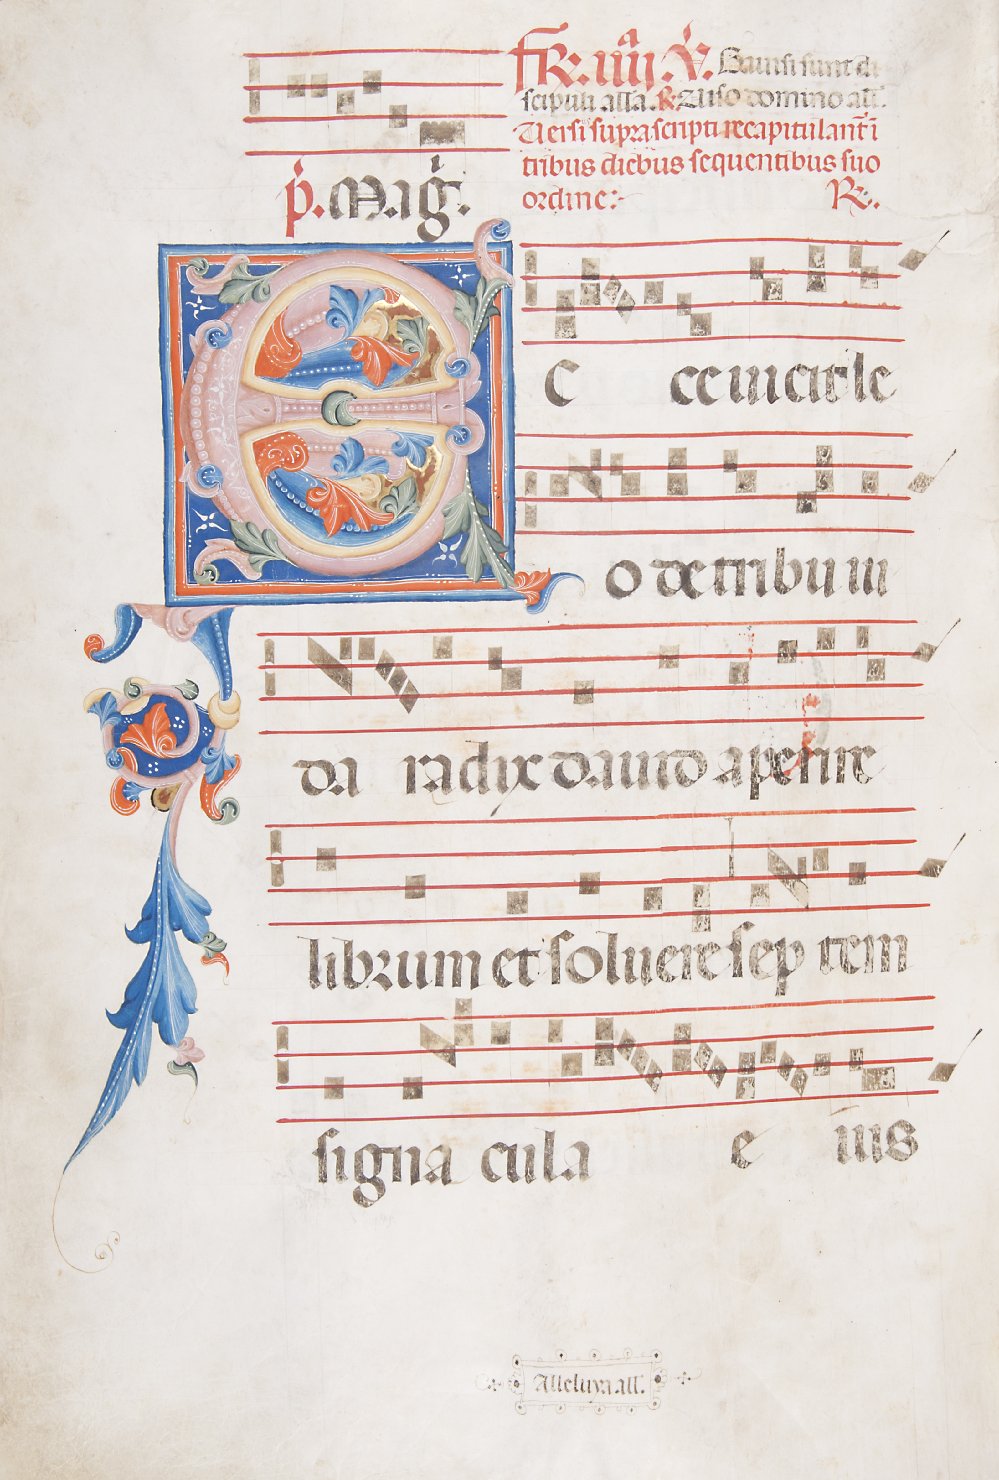 FR. iiij. V. Gauisi sunt di
scipuli alla. R Uiso domino all.
Uersi suprascripti recapitulant i
tribus diebus sequentibus suo
ordine: R.
p. Mag.
E C ce uicit le
o de tribu iu
da radix dauid aperire
librum et soluere sep tem
signa cula e ius
Alleluya all.